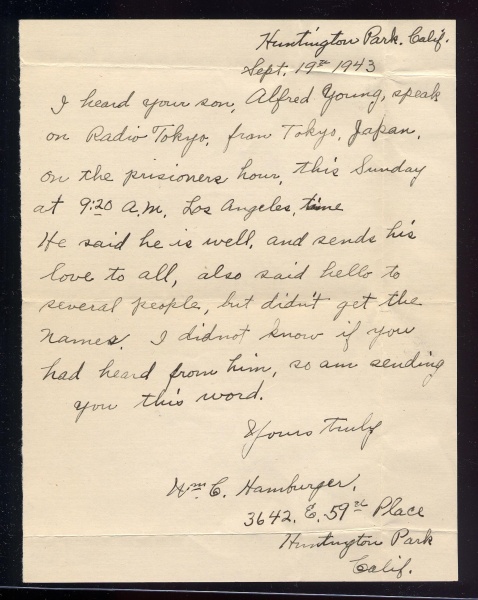 Huntington Park. Calif.
Sept. 19th 1943
I heard your son, Alfred Young, speak
on Radio Tokyo, from Tokyo, Japan,
on the prisioners hour, this Sunday
at 9:20 A.M. Los Angeles, time
He said he is well, and sends his
love to all, also said hello to
several people, but didn't get the
names. I didnot know if you
had heard from him, so am sending
you this word.
Yours Truly
Wm C. Hamburger,
3642. E. 59th Place
Huntington Park
Calif.